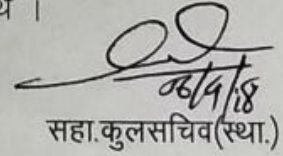 ।
06/9/18
सहा.कुलसचिव(स्था.)